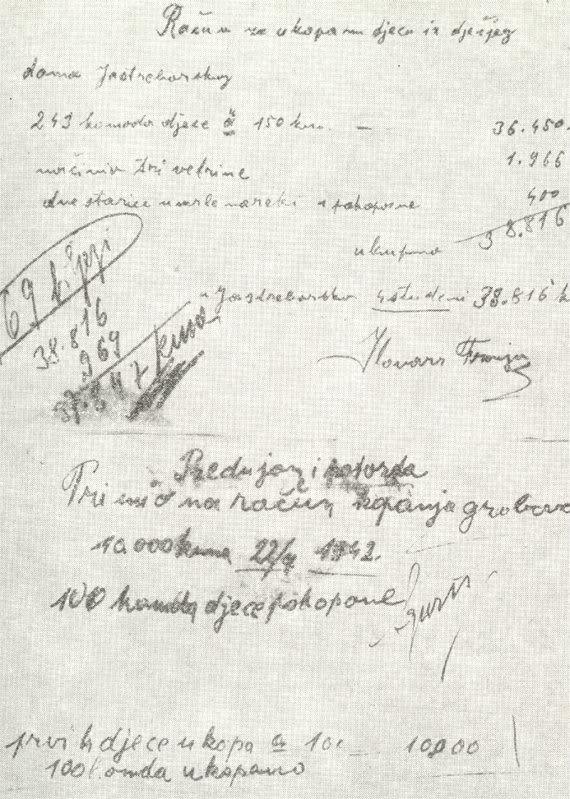 Račun za ukopanu djecu iz dječjeg
doma Jastrebarskog
243 komada djece à 150 kun. — 36.450.
tri vetrine 1.966
dve starice umrle i pokopane 400
ukupno 38.816
69
38.816
969
37.847 kuna
u Jastrebarsko 4 studeni 38.816 k
Ilovara Franjo
Predujam i potvrda
Primio na račun kopanja grobova
10.000 kuna 22/ 1942.
100 komada djece pokopane
prvih djece ukopa à 100 — 10000
100 komda ukopano